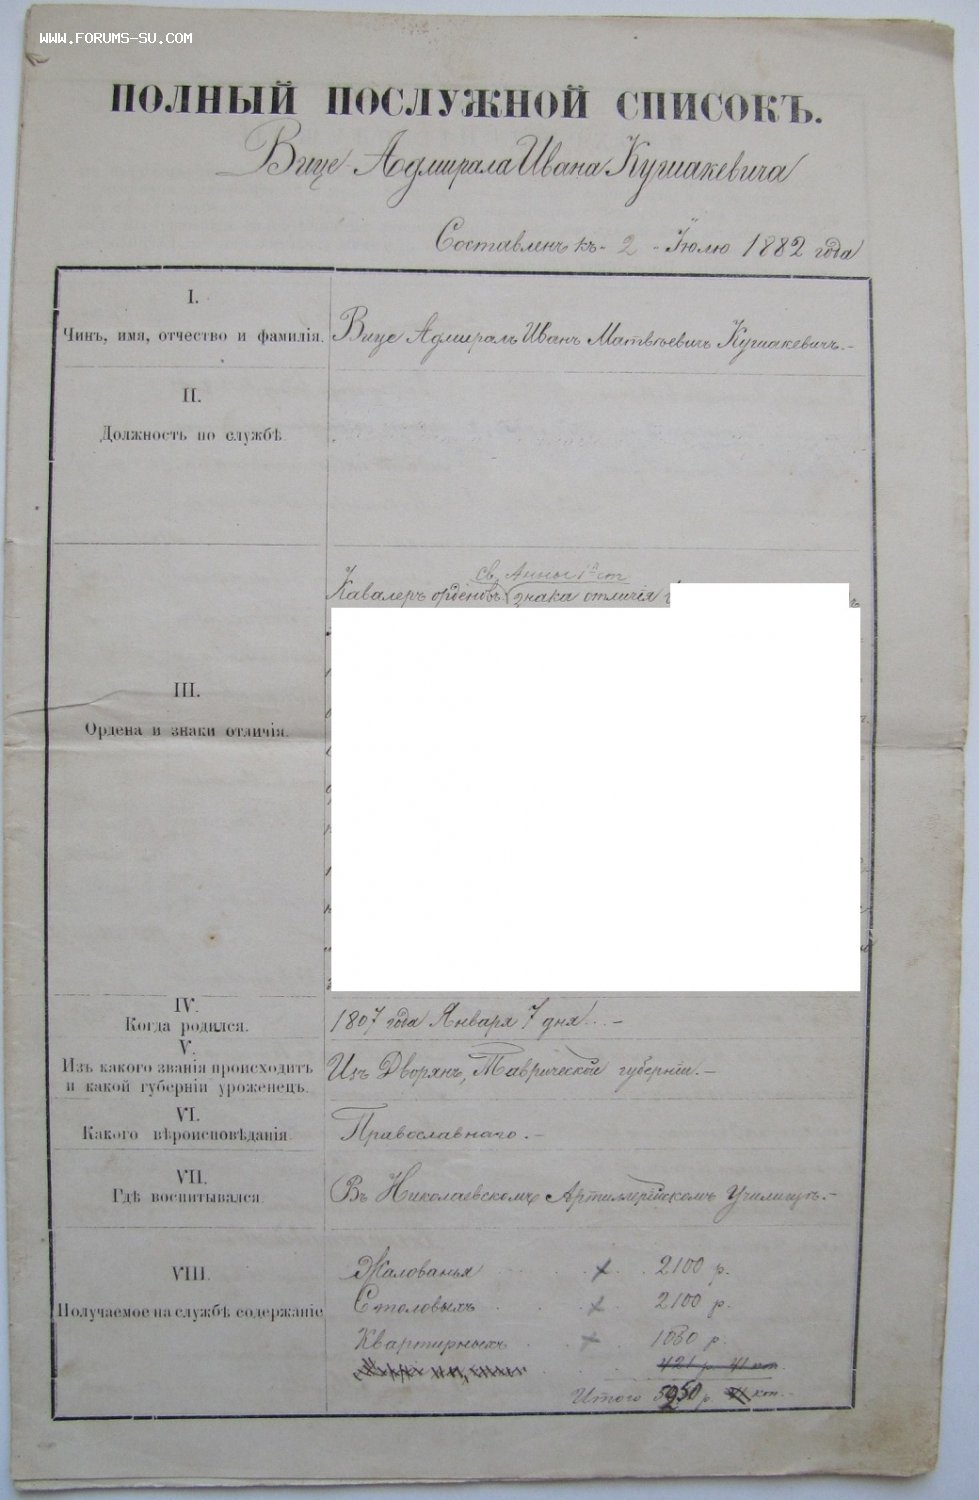 WWW.FORUMS-SU.COM
ПОЛНЫЙ ПОСЛУЖНОЙ СПИСОКЪ.
Вице Адмирала Ивана Кушакевича
Составленъ къ 2 Июлю 1882 года
I.
Чинъ, имя, отчество и фамилія.
Вице Адмиралъ Иванъ Матвѣевичъ Кушакевичъ.
II.
Должность по службѣ.
III.
Ордена и знаки отличія.
Св. Анны 1й ст
Кавалеръ орденовъ: знака отличія
IV.
Когда родился.
1807 года Января 7 дня...
V.
Изъ какого званія происходитъ
и какой губерніи уроженецъ.
Изъ Дворянъ, Таврической губерніи.
VI.
Какого вѣроисповѣданія.
Православнаго.
VII.
Гдѣ воспитывался.
Въ Николаевскомъ Артиллерійскомъ Училищѣ.
VIII.
Получаемое на службѣ содержаніе
Жалованья 2100 р.
Столовыхъ 2100 р.
Квартирныхъ р.
421 р. 41 коп.
Итого р. коп.